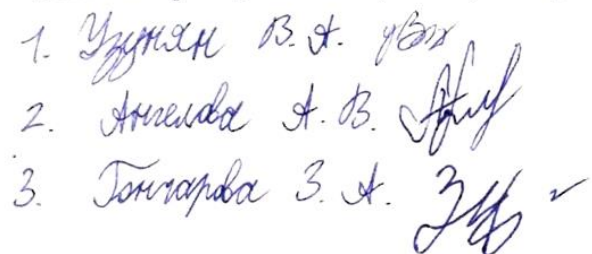 1. Узунян В. А.
2. Ангелова А. В.
3. Гончарова З. А.